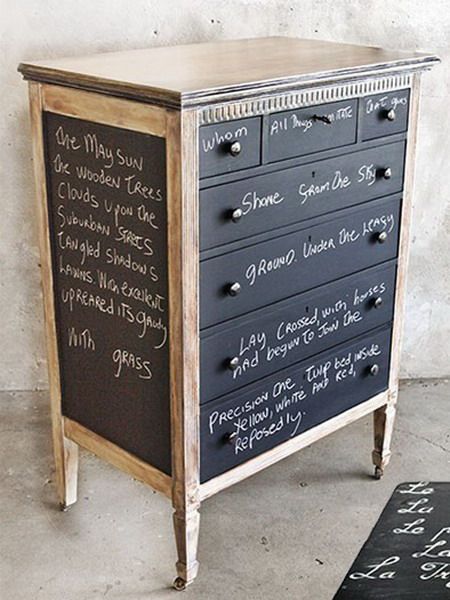 the MAY SUN
the WOODEN TREES
Clouds UPON the
Suburban STREETS
tangled Shadows
LAWNS. With excellent
UPREARED ITS GAUDY
With GRASS
WHOM
All Things IMITATE
that GUNS
Shone from the Sky
GROUND. UNDER the LEAFY
LAY CROSSED, with horses
HAD begun to JOIN the
PRECISION the TULIP BED INSIDE
YELLOW, WHITE AND RED,
REPOSEDLY.
Le
La
Le p
La
La Tr